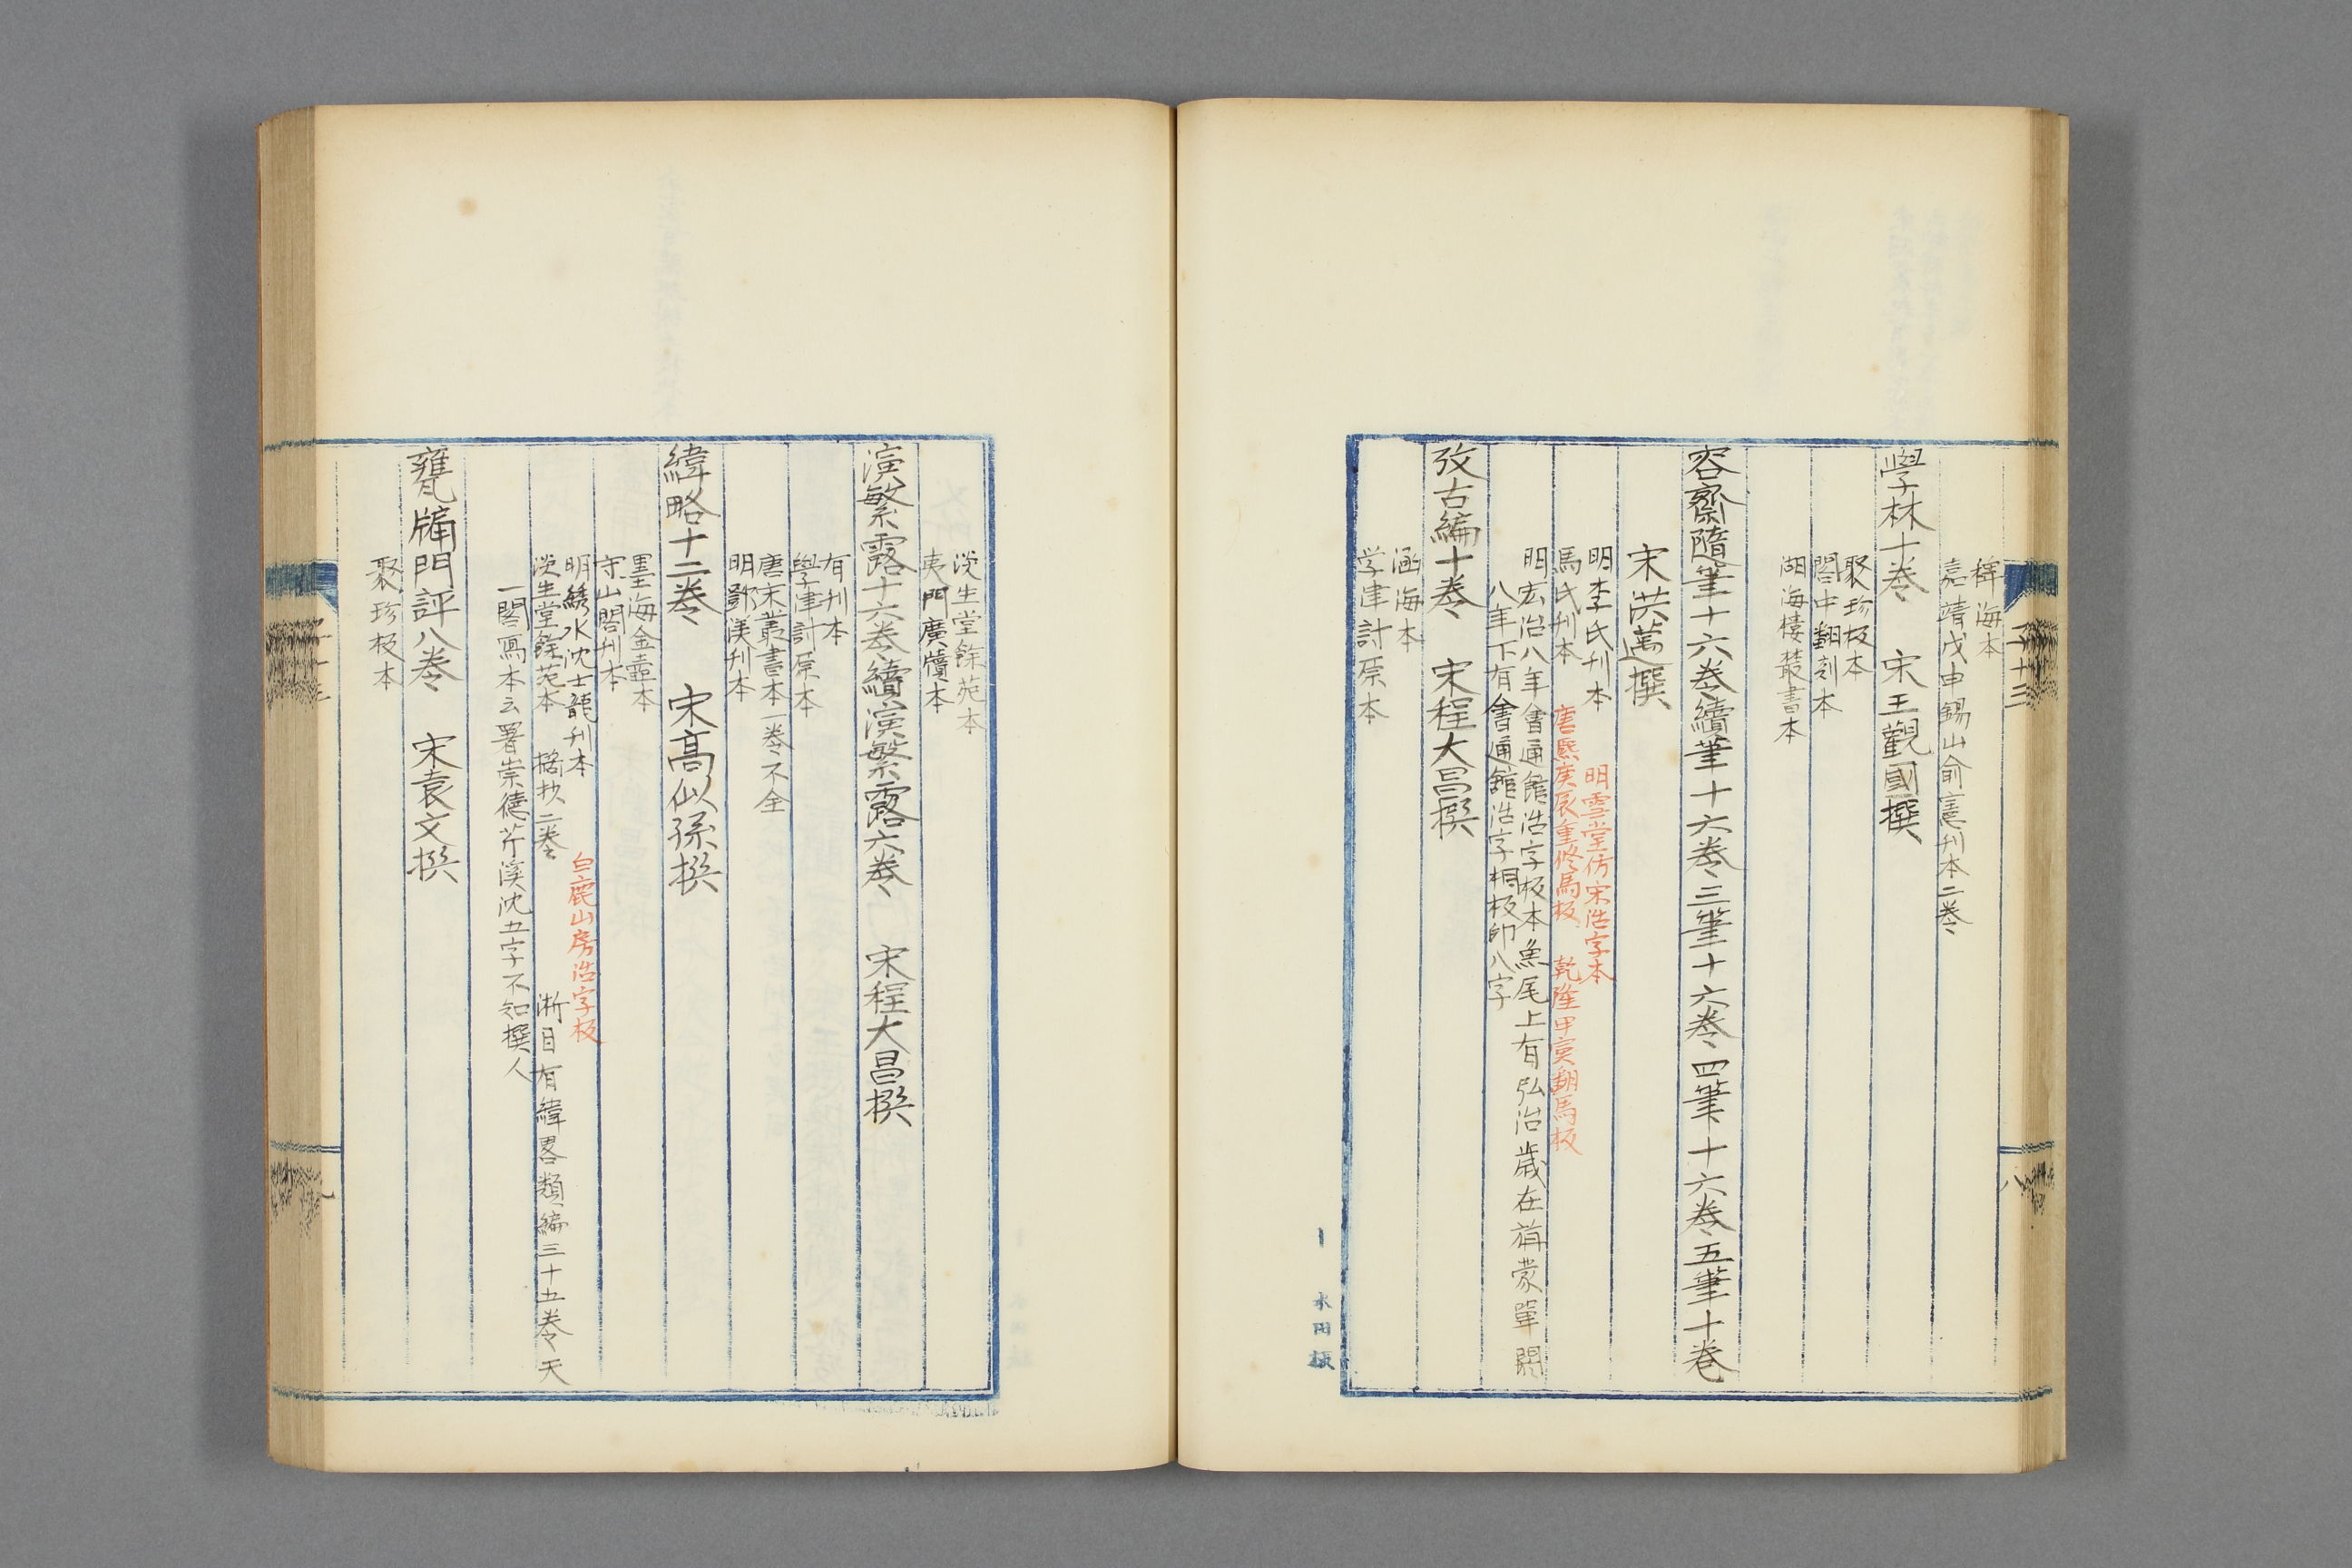 稗海本
嘉靖戊申錫山俞憲刊本二卷
學林十卷　宋王觀國撰
聚珍板本
閣中翻刻本
湖海樓叢書本
容齋隨筆十六卷續筆十六卷三筆十六卷四筆十六卷五筆十卷
宋洪邁撰
明李氏刊本　明雪堂仿宋浩字本
馬氏刊本　唐熙庚辰重修馬板　乾隆甲寅翻馬板
明宏治八年會通館浩字板本魚尾上有弘治歲在旃蒙單閼
八年下有會通館浩字桐板印八字
攷古編十卷　宋程大昌撰
涵海本
学津討原本
淡生堂餘苑本
夷門廣牘本
演繁露十六卷續演繁露六卷　宋程大昌撰
有刊本
學津討原本
唐宋叢書本一卷不全
明鄧渼刊本
緯略十二卷　宋高似孫撰
墨海金壺本
守山閣刊本
明繡水沈士龍刊本　白鹿山房浩字板
淡生堂餘苑本　摘抄二卷　浙目有緯畧類編三十五卷天
一閣寫本云署崇德芹溪沈五字不知撰人
甕牖門評八卷　宋袁文撰
聚珍板本
子十三
八